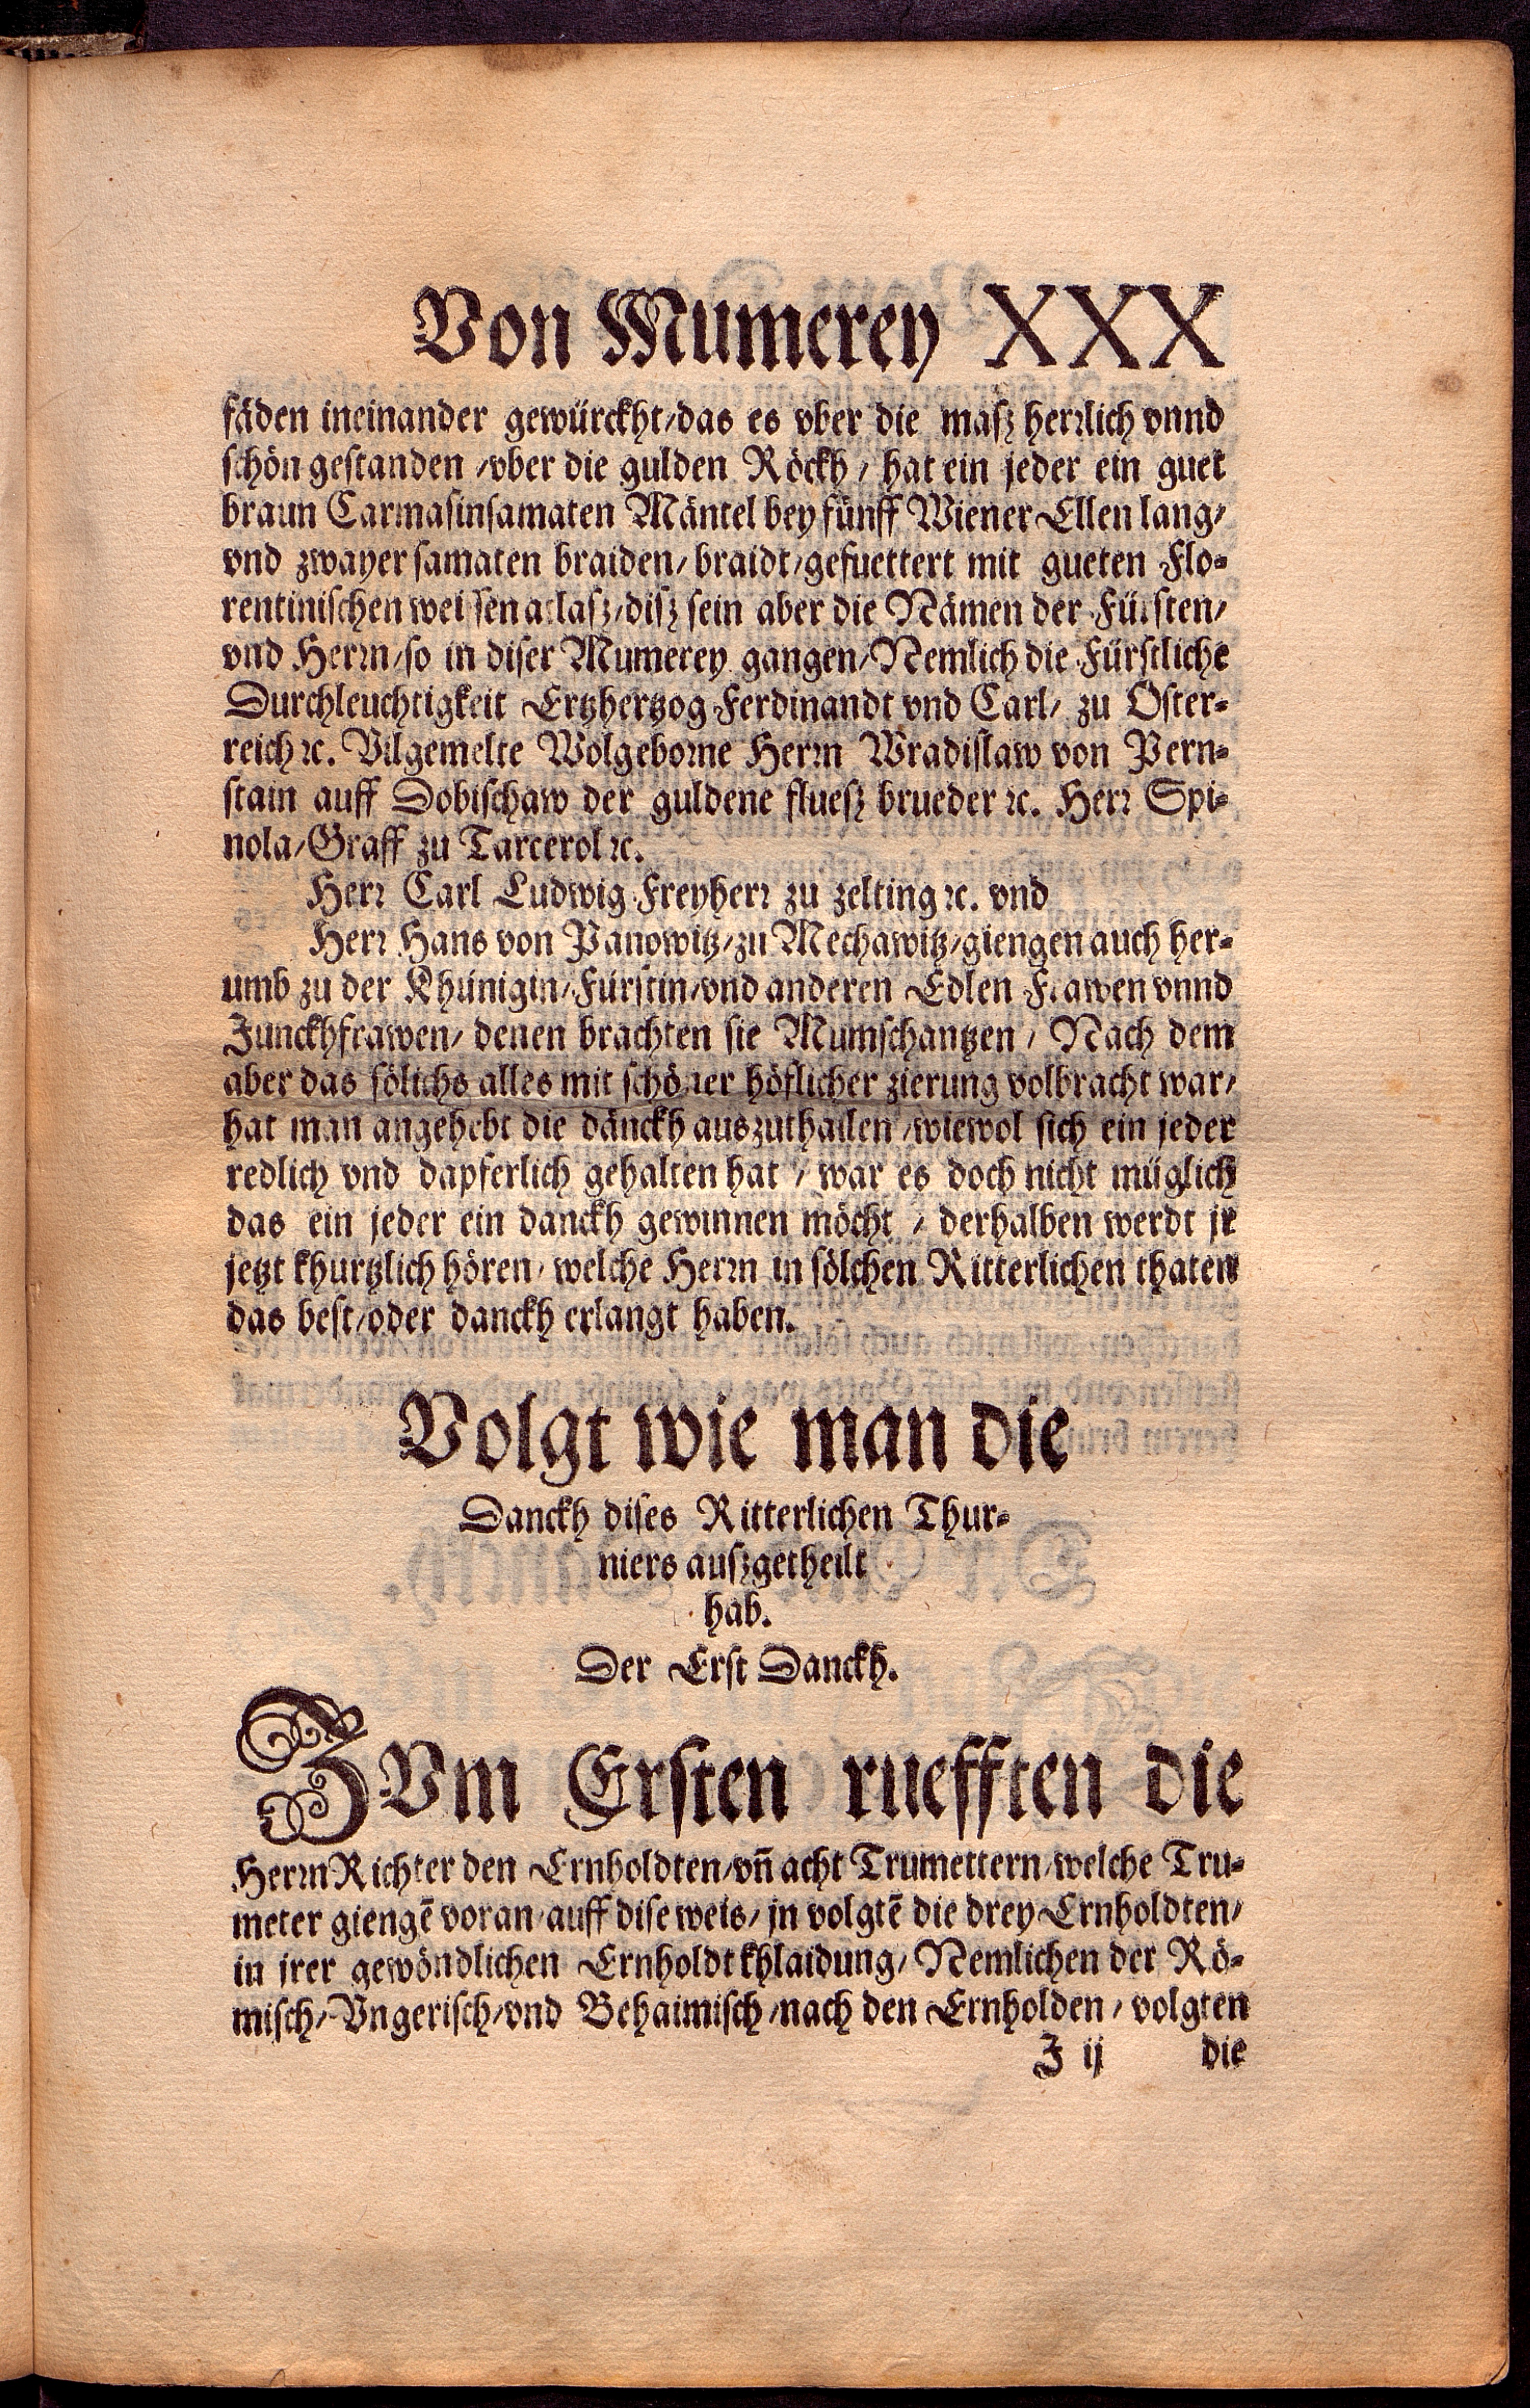 Von Mumerey XXX
fäden ineinander gewürckht/das es vber die masz herrlich vnnd
schön gestanden /vber die gulden Röckh / hat ein jeder ein guet
braun Carmasinsamaten Mäntel bey fünff Wiener Ellen lang/
vnd zwayer samaten braiden/ braidt/gefuettert mit gueten Flo-
rentinischen weissen atlasz/disz sein aber die Nämen der Fürsten/
vnd Herrn/so in diser Mumerey gangen/Nemlich die Fürstliche
Durchleuchtigkeit Ertzhertzog Ferdinandt vnd Carl/ zu Öster-
reich ꝛc. Vilgemelte Wolgeborne Herrn Wradislaw von Pern-
stain auff Dobischaw der guldene fluesz brueder ꝛc. Herr Spi-
nola/Graff zu Tarcerol ꝛc.
Herr Carl Ludwig Freyherr zu zelting ꝛc. vnd
Herr Hans von Panowitz/zu Mechawitz/giengen auch her-
umb zu der Khünigin/Fürstin/vnd anderen Edlen Frawen vnnd
Junckhfrawen/ denen brachten sie Mumschantzen / Nach dem
aber das sölichs alles mit schöner höflicher zierung volbracht war/
hat man angehebt die dänckh auszuthailen /wiewol sich ein jeder
redlich vnd dapferlich gehalten hat / war es doch nicht müglich
das ein jeder ein danckh gewinnen möcht / derhalben werdt jr
jetzt khurtzlich hören/ welche Herrn in sölchen Ritterlichen thaten
das best/oder danckh erlangt haben.
Volgt wie man die
Danckh dises Ritterlichen Thur-
niers auszgetheilt
hab.
Der Erst Danckh.
ZVm Ersten ruefften die
Herrn Richter den Ernholdten/vñ acht Trumettern/welche Tru-
meter giengē voran/auff dise weis/ jn volgtē die drey Ernholdten/
in jrer gewöndlichen Ernholdtkhlaidung/ Nemlichen der Rö-
misch/Vngerisch/vnd Behaimisch /nach den Ernholden / volgten
J ij die